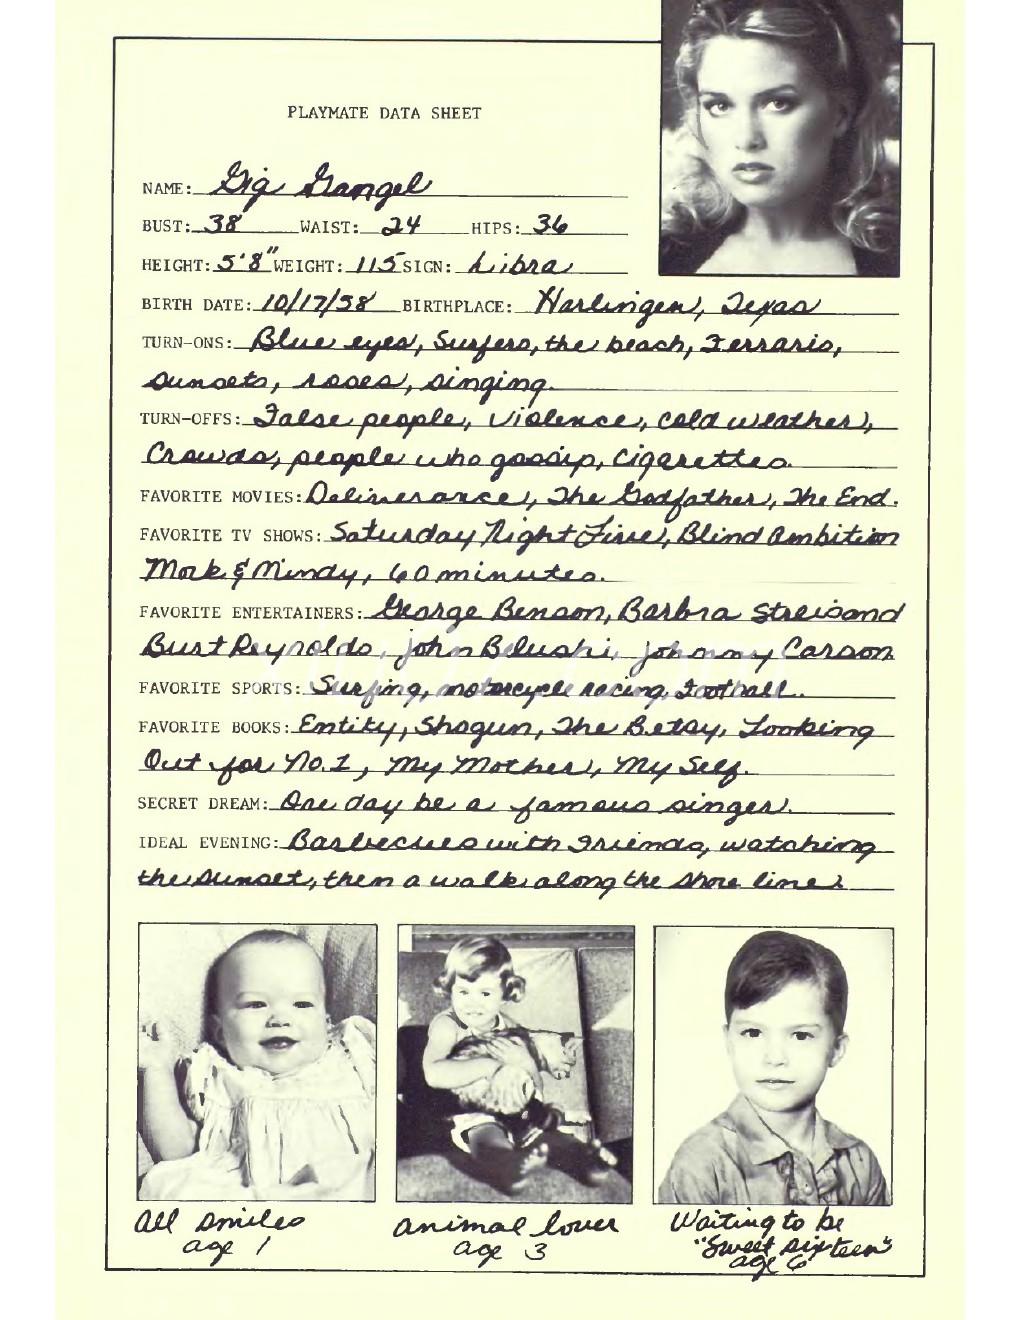 PLAYMATE DATA SHEET
NAME: Gig Gangel
BUST: 38 WAIST: 24 HIPS: 36
HEIGHT: 5'8" WEIGHT: 115 SIGN: Libra
BIRTH DATE: 10/17/58 BIRTHPLACE: Harlingen, Texas
TURN-ONS: Blue eyes, Surfers, the beach, Ferraris,
sunsets, roses, singing.
TURN-OFFS: False people, violence, cold weather,
Crowds, people who gossip, cigarettes.
FAVORITE MOVIES: Deliverance, The Godfather, The End.
FAVORITE TV SHOWS: Saturday Night Live, Blind Ambition
Mork & Mindy, 60 minutes.
FAVORITE ENTERTAINERS: George Benson, Barbra Streisand
Burt Reynolds, john Belushi, johnny Carson
FAVORITE SPORTS: Surfing, motorcycle racing, Football.
FAVORITE BOOKS: Entity, Shogun, The Betsy, Looking
Out for No.1, My Mother, My Self.
SECRET DREAM: One day be a famous singer.
IDEAL EVENING: Barbecues with friends, watching
the sunset, then a walk along the shore line.
All smiles
age 1
animal lover
age 3
Waiting to be
"sweet sixteen"
age 6